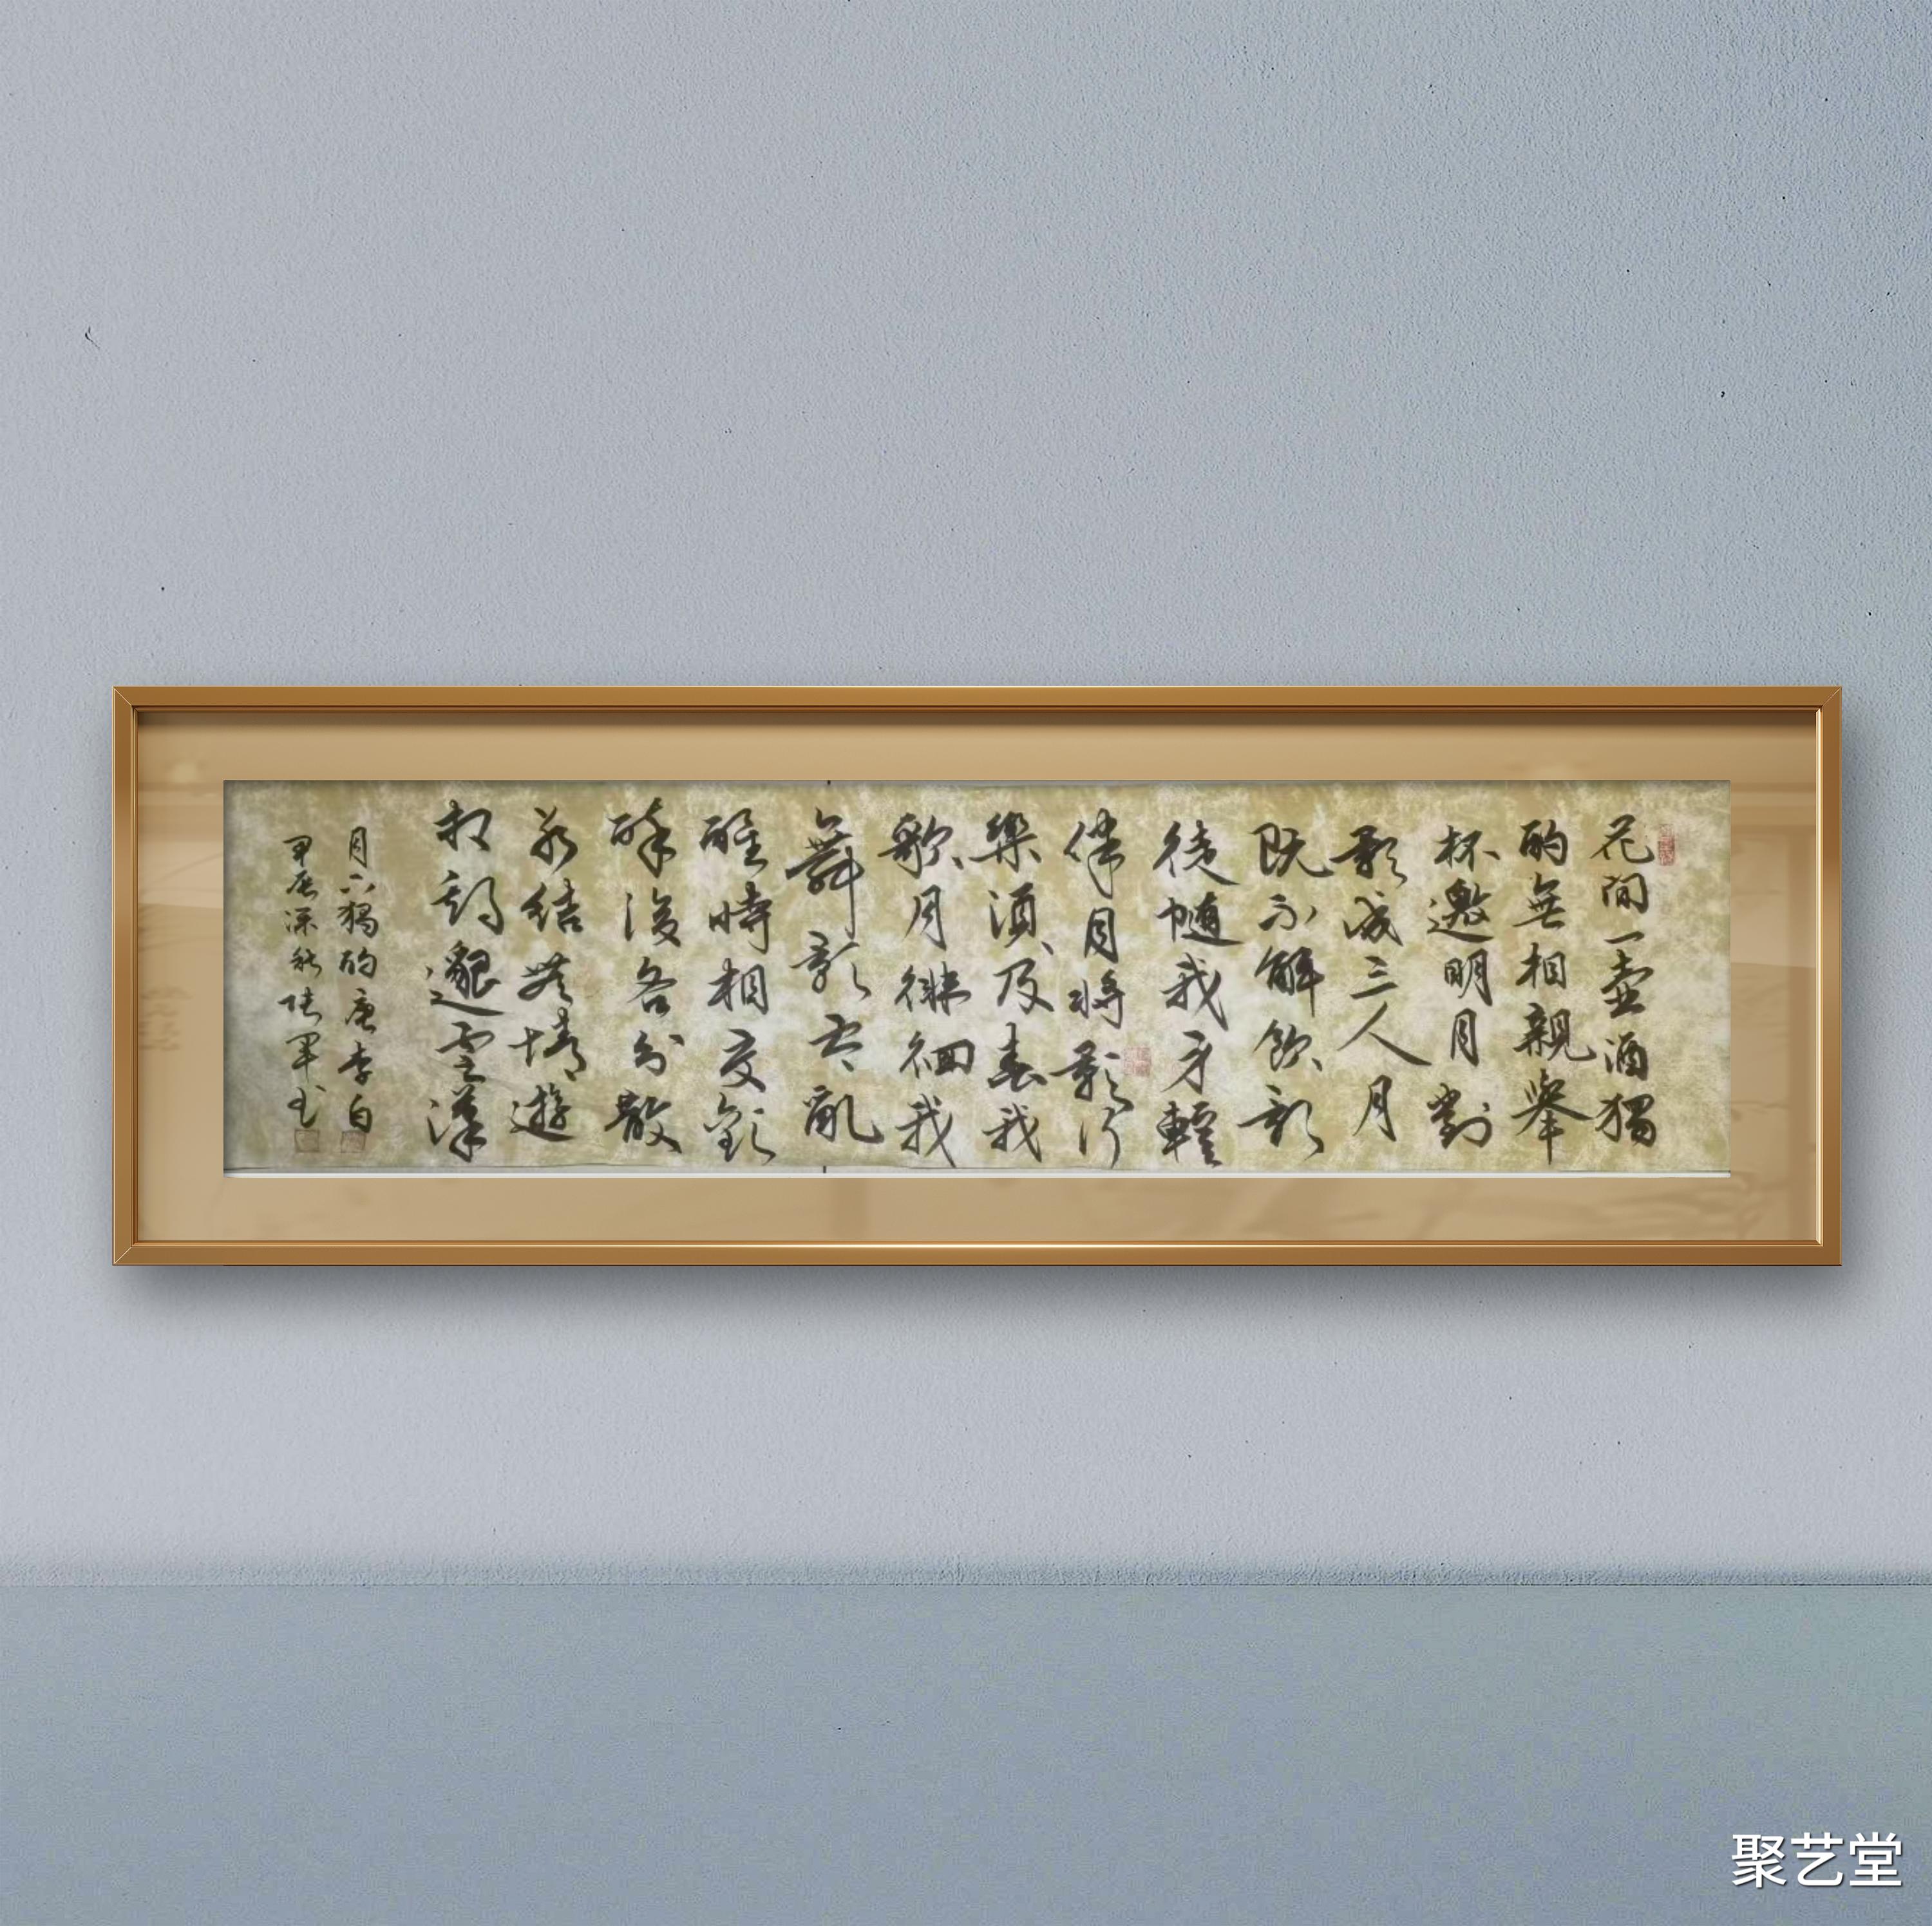 花間一壺酒獨
酌無相親舉
杯邀明月對
影成三人月
既不解飲影
徒隨我身
伴月將影行
樂須及春我
歌月徘徊我
舞影零亂
醒時相交歡
醉後各分散
永結無情遊
相期邈雲漢
月下獨酌唐李白
甲辰深秋軍书
聚艺堂